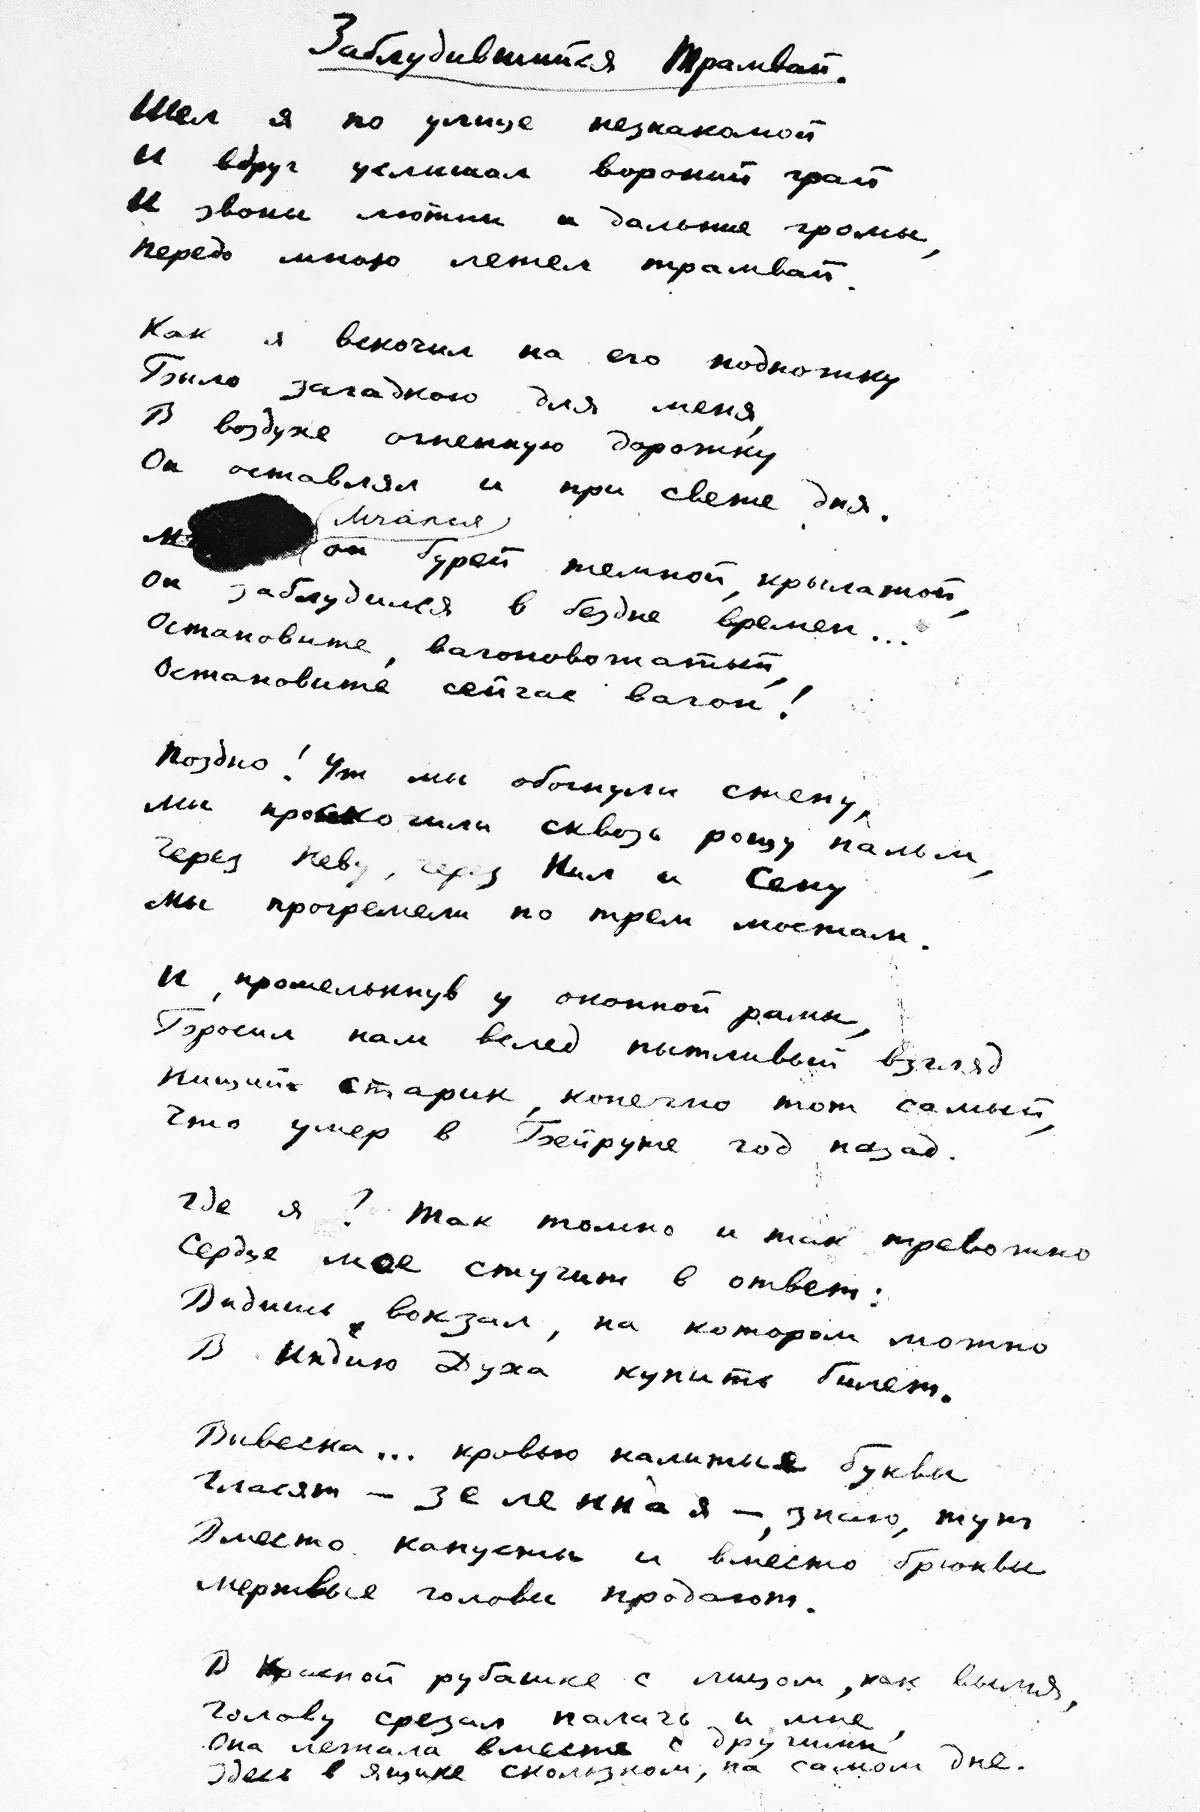 Заблудившийся Трамвай.
Шел я по улице незнакомой
И вдруг услышал вороний грай
И звоны лютни и дальние громы,
Передо мною летел трамвай.
Как я вскочил на его подножку
Было загадкою для меня,
В воздухе огненную дорожку
Он оставлял и при свете дня.
Мчался
он бурей темной, крылатой,
Он заблудился в бездне времен...
Остановите, вагоновожатый,
Остановите сейчас вагон!
Поздно! Уж мы обогнули стену,
Мы проскочили сквозь рощу пальм,
Через Неву, через Нил и Сену
Мы прогремели по трем мостам.
И, промелькнув у оконной рамы,
Бросил нам вслед пытливый взгляд
Нищий старик, конечно тот самый,
Что умер в Бейруте год назад.
Где я? Так томно и так тревожно
Сердце мое стучит в ответ:
Видишь вокзал, на котором можно
В Индию Духа купить билет.
Вывеска... кровью налитые буквы
Гласят — зеленная —, знаю, тут
Вместо капусты и вместо брюквы
Мертвые головы продают.
В красной рубашке с лицом, как вымя,
Голову срезал палач и мне,
Она лежала вместе с другими
Здесь в ящике скользком, на самом дне.